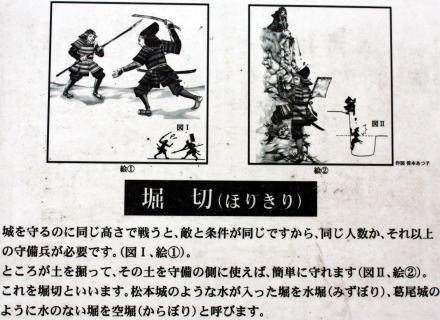 図Ⅰ
図Ⅱ
絵①
絵②
作図 青木あつ子
堀 切(ほりきり)
城を守るのに同じ高さで戦うと、敵と条件が同じですから、同じ人数か、それ以上
の守備兵が必要です。(図Ⅰ、絵①)。
ところが土を掘って、その土を守備の側に使えば、簡単に守れます(図Ⅱ、絵②)。
これを堀切といいます。松本城のような水が入った堀を水堀(みずぼり)、葛尾城の
ように水のない堀を空堀(からぼり)と呼びます。